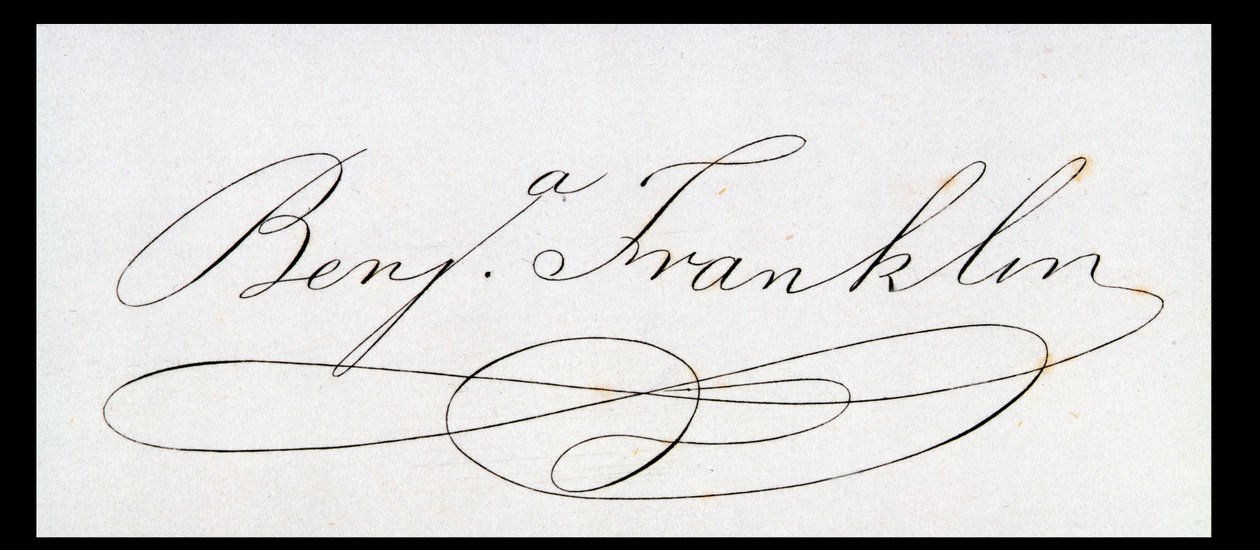 Benj.ª Franklin